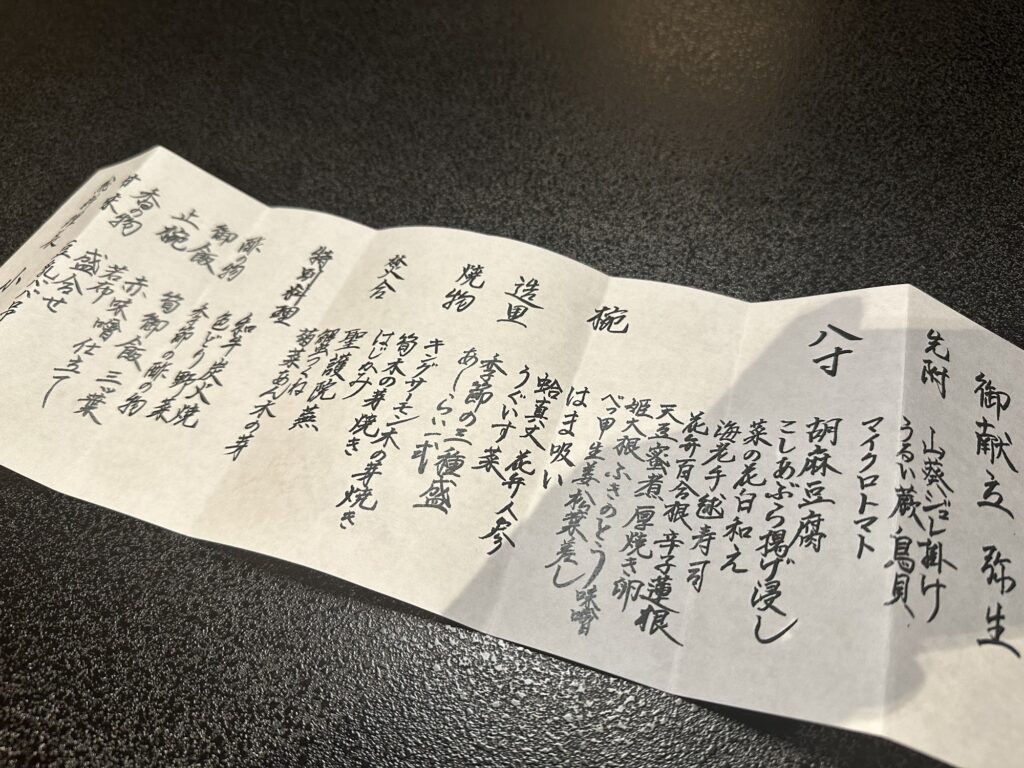 御献立 弥生
先附 山葵ジュレ掛け
うるい蕨 鳥貝
マイクロトマト
八寸 胡麻豆腐
こしあぶら揚げ浸し
菜の花白和え
海老手毬寿司
花弁百合根 辛子蓮根
天豆蜜煮 厚焼き卵
姫大根 ふきのとう味噌
べっ甲生姜松葉差し
椀 はま吸い
蛤真丈 花弁人参
うぐいす菜
造里 季節の三種盛
あしらい一式
焼物 キングサーモン木の芽焼き
筍木の芽焼き
はじかみ
焚合 聖護院蕪
蟹つくね
菊菜あん 木の芽
特別料理 和牛炭火焼
色どり野菜
酢の物 季節の酢の物
御飯 筍御飯 三ツ葉
止椀 赤味噌仕立て
若布
香の物 盛合せ